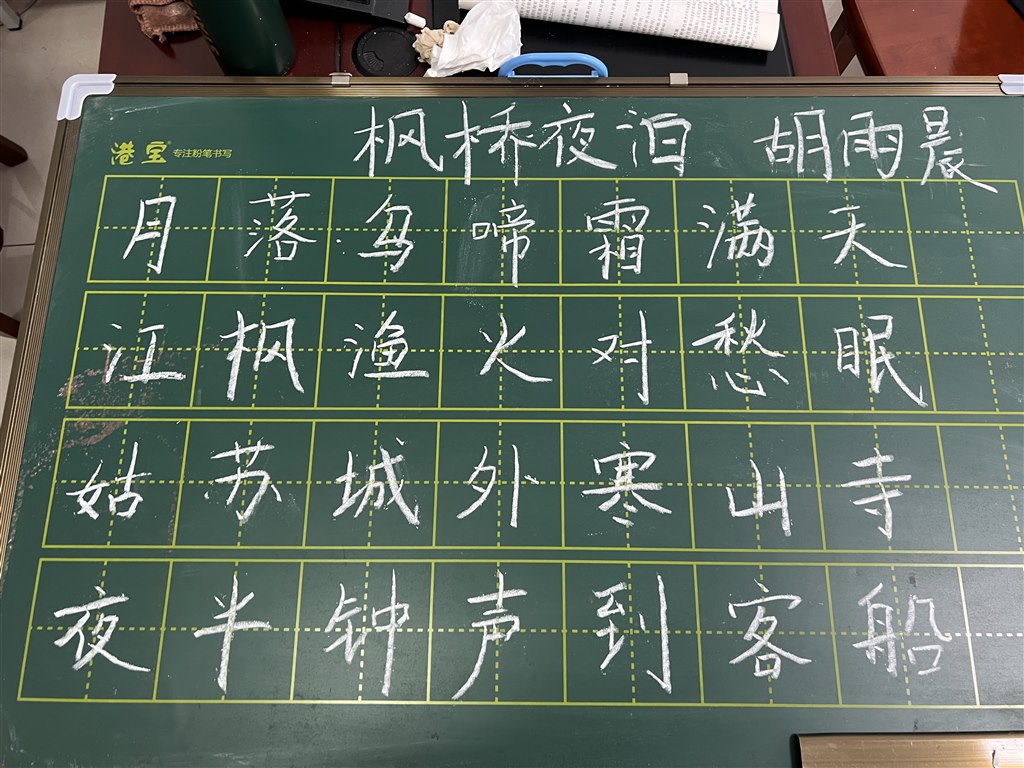 枫桥夜泊 胡雨晨
港宝 专注粉笔书写
月落乌啼霜满天
江枫渔火对愁眠
姑苏城外寒山寺
夜半钟声到客船